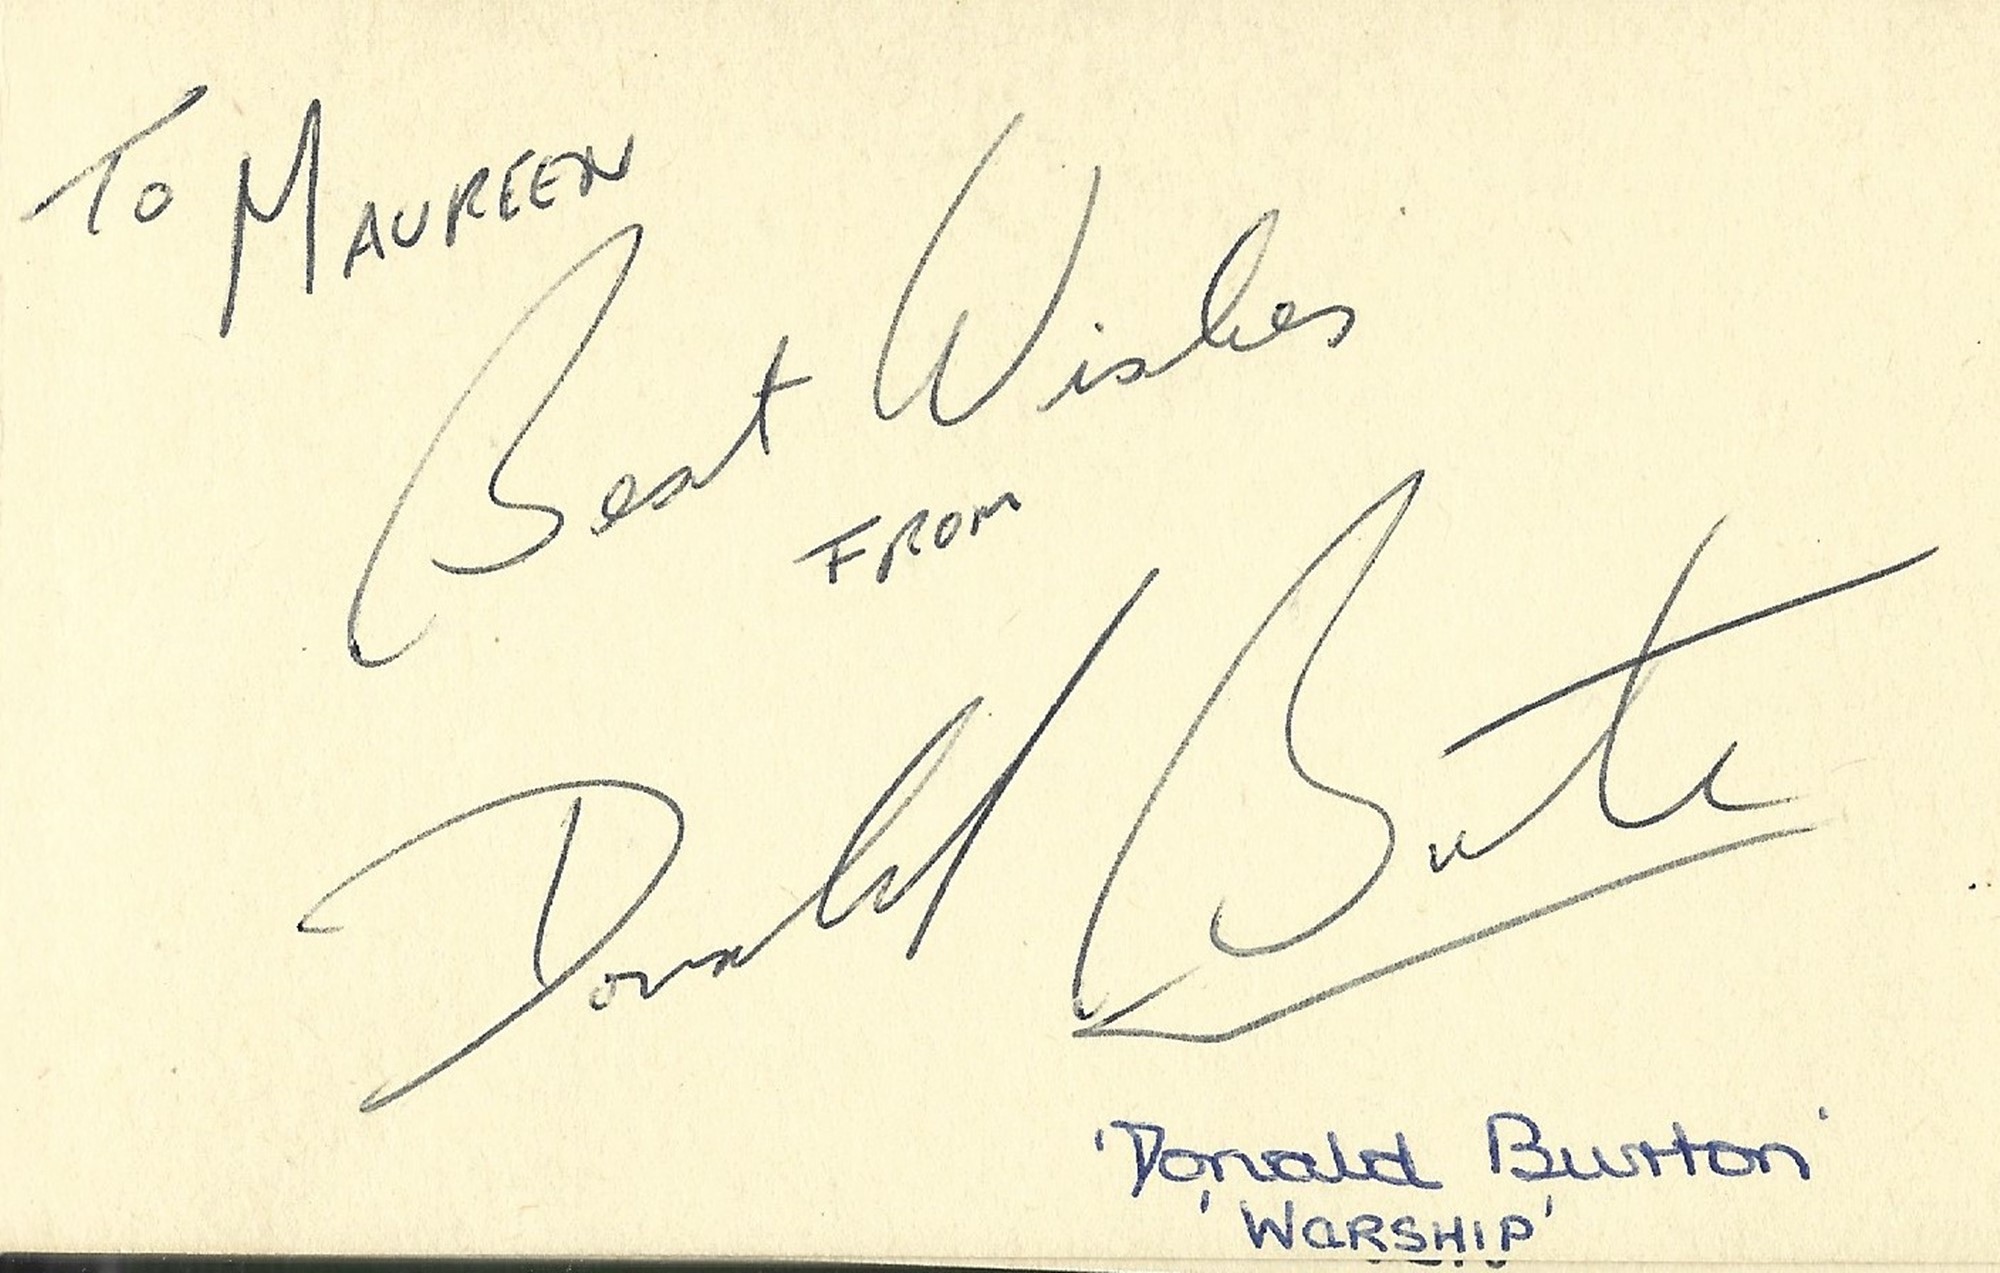 To MAUREEN
Best Wishes
FROM
Donald Burton
'Donald Burton'
'WARSHIP'